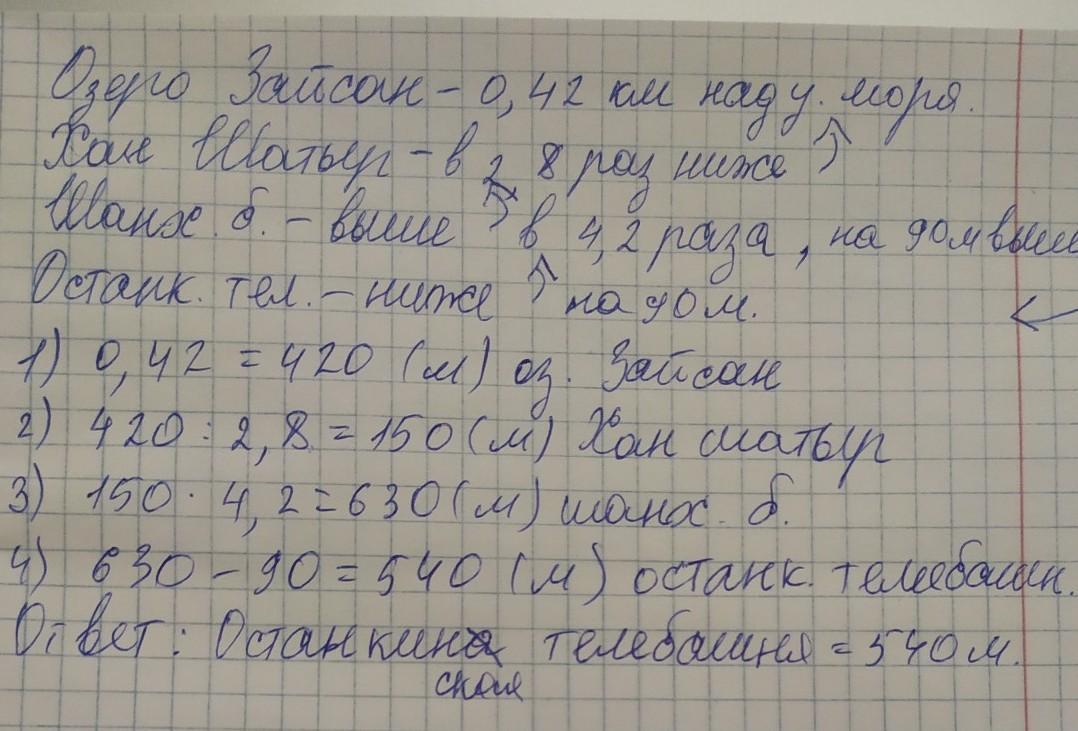 Озеро Зайсан - 0,42 км над у. моря.
Хан Шатыр - в 2,8 раз ниже
Шанх. б. - выше в 4,2 раза, на 90м выше
Останк. тел. - ниже на 90 м.
1) 0,42 = 420 (м) оз. Зайсан
2) 420 : 2,8 = 150 (м) Хан шатыр
3) 150 · 4,2 = 630 (м) шанх. б.
4) 630 - 90 = 540 (м) останк. телебашн.
Ответ: Останкинская телебашня = 540 м.